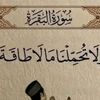 سُورَةُ البَقَرَة
وَلَا تُحَمِّلْنَا مَا لَا طَاقَةَ